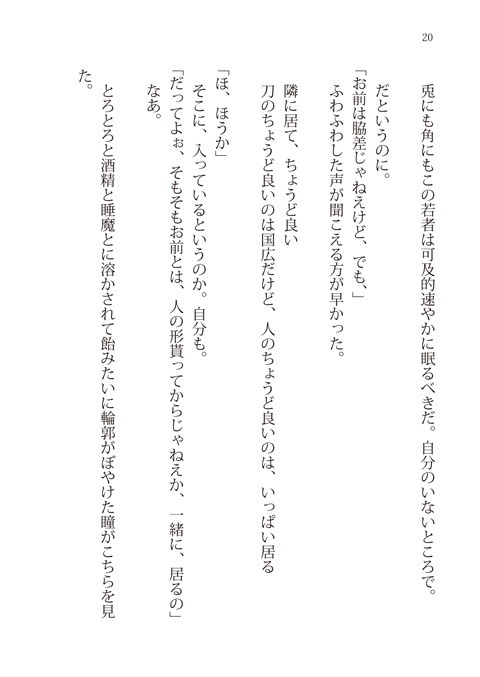 20
兎にも角にもこの若者は可及的速やかに眠るべきだ。自分のいないところで。
だというのに。
「お前は脇差じゃねえけど、でも、」
ふわふわした声が聞こえる方が早かった。
隣に居て、ちょうど良い
刀のちょうど良いのは国広だけど、人のちょうど良いのは、いっぱい居る
「ほ、ほうか」
そこに、入っているというのか。自分も。
「だってよぉ、そもそもお前とは、人の形貰ってからじゃねえか、一緒に、居るの」
なあ。
とろとろと酒精と睡魔とに溶かされて飴みたいに輪郭がぼやけた瞳がこちらを見
た。